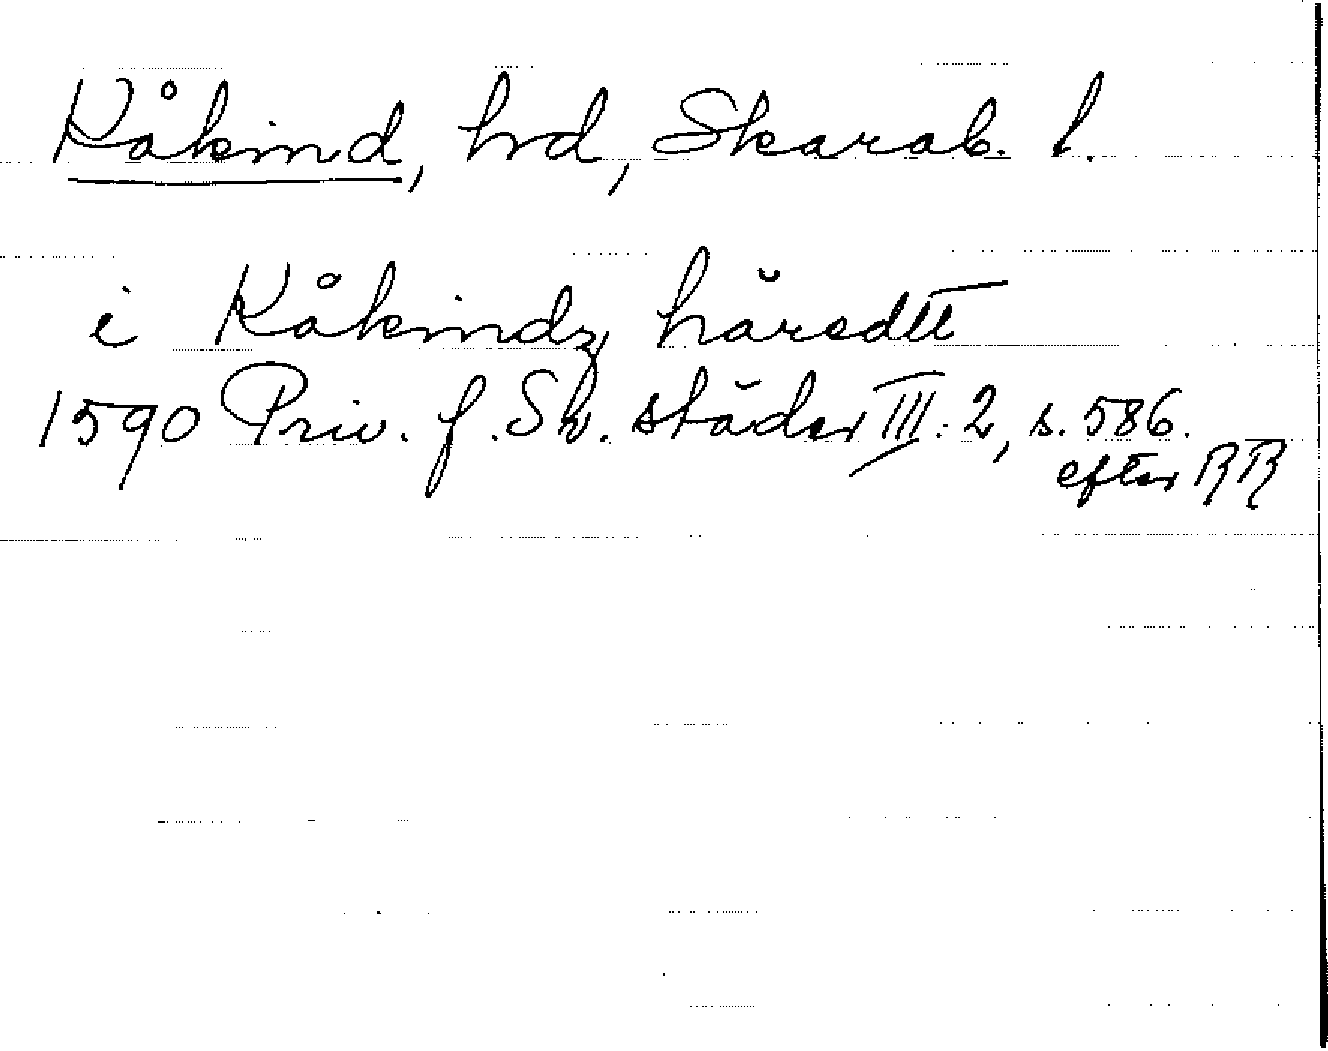 Kåkind, hrd, Skarab. l.
i Kåkindz häredtt
1590 Priv. f. Sv. städer III: 2, s. 586.
efter RR